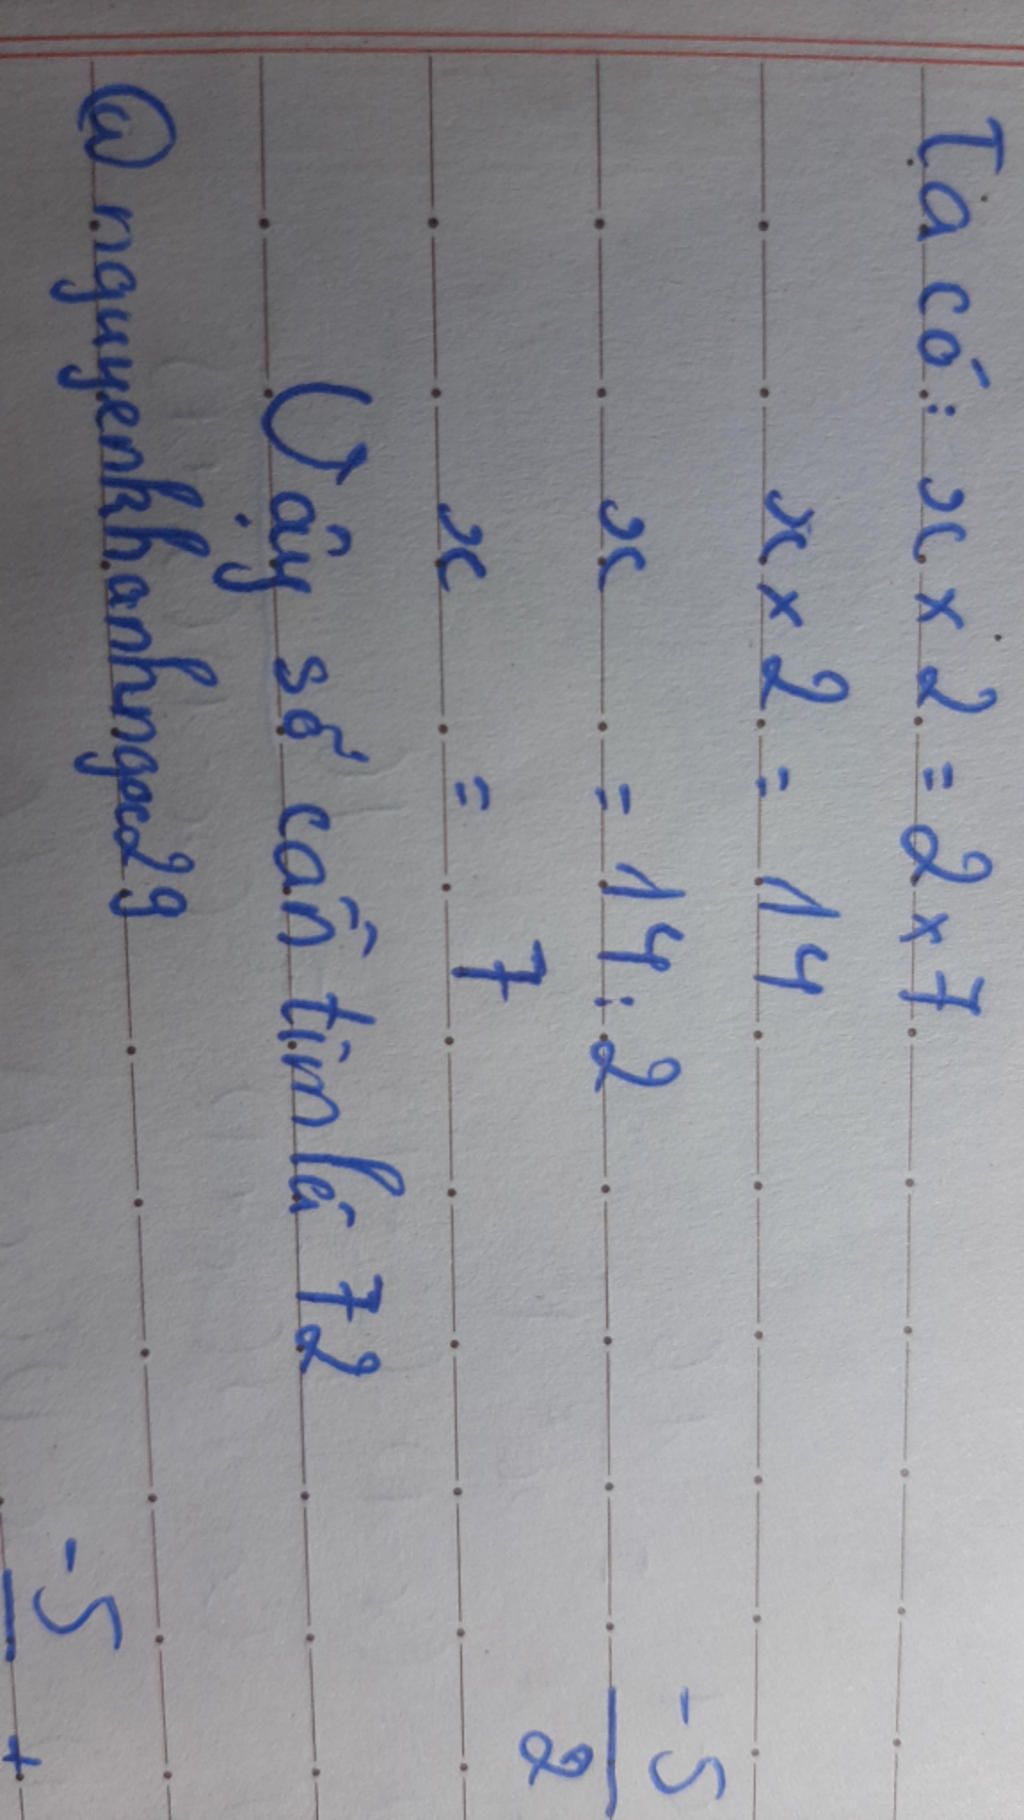 Ta có: x x 2 = 2 x 7
x x 2 = 14
x = 14 : 2
x = 7
Vậy số cần tìm là 72
@ nguyenkhanhngoc29
-5
2
-5
+